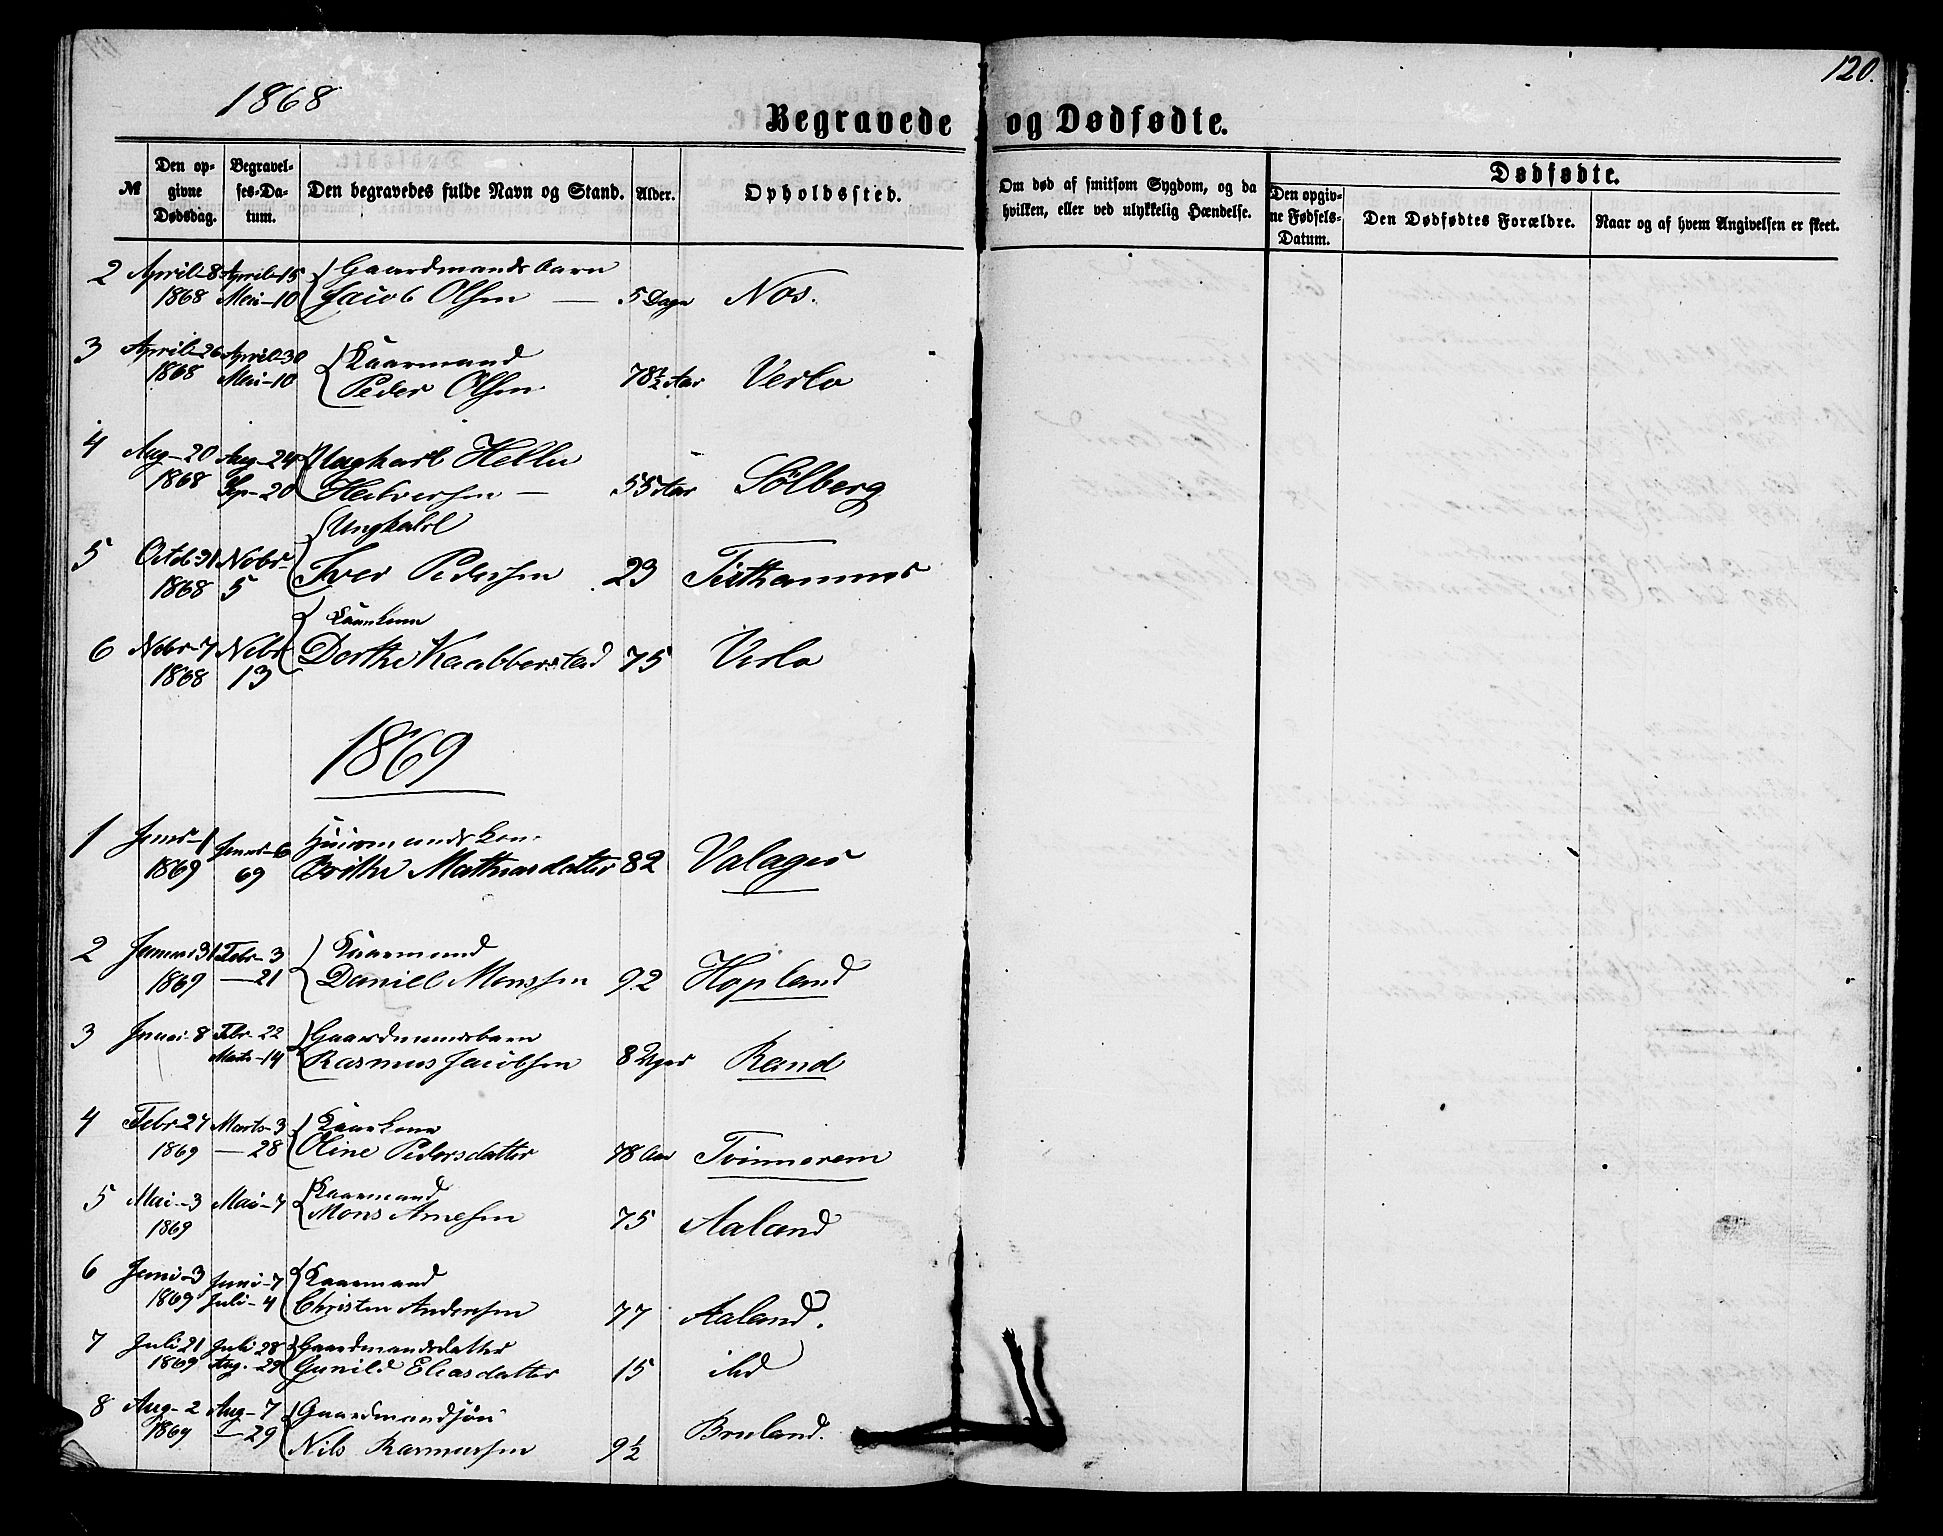 120.
1868
Begravede og Dødfødte.
№
Den opgivne Dødsdag.
Begravelses-Datum.
Den begravedes fulde Navn og Stand.
Alder.
Opholdssted.
Om død af smitsom Sygdom, og da hvilken, eller ved ulykkelig Hændelse.
Dødfødte.
Den opgivne Fødsels-Datum.
Den Dødfødtes Forældre.
Naar og af hvem Angivelsen er skeet.
2 April-8 1868 April-15 Mai-10 Gaardmandsbarn Jacob Olsen — 5 Dage Nos.
3 April-26 1868 April-30 Mai-10 Kaarmand Peder Olsen 78½ Aar Verlo
4 Aug-20 1868 Aug-24 Sep-20 Ungkarl Helle Halversen — 55 Aar Sølberg
5 Octob-31 1868 Nobr 5 Ungkarl Iver Pedersen 23 Tisthammer
6 Nobr-7 1868 Nobr 13 Kaarkone Dorthe Kaabberstad 75 Verlo
1869
1 Januar-1 1869 Januar-6 69 Huusmandskone Brithe Mathiasdatter 82 Valager
2 Januar 31 1869 Febr-3 —21 Kaarmand Daniel Monssen 92 Hopland
3 Januar-8 Febr-22 Marts-14 Gaardmandsbarn Rasmus Jacobsen 8 Uger Rand
4 Febr-27 1869 Marts-3 —28 Kaarkone Oline Pedersdatter 78 Aar Tvinnerem
5 Mai-3 1869 Mai-7 Kaarmand Mons Arnesen 75 Aaland
6 Juni-3 1869 Juni-7 Juli-4 Kaarmand Christen Andersen 77 Aaland.
7 Juli 21 1869 Juli 28 Aug.-29 Gaardmandsdatter Gunild Eliasdatter 15 ibd
8 Aug-2 1869 Aug-7 —29 Gaardmandsøn Nils Rasmussen 9½ Bruland.